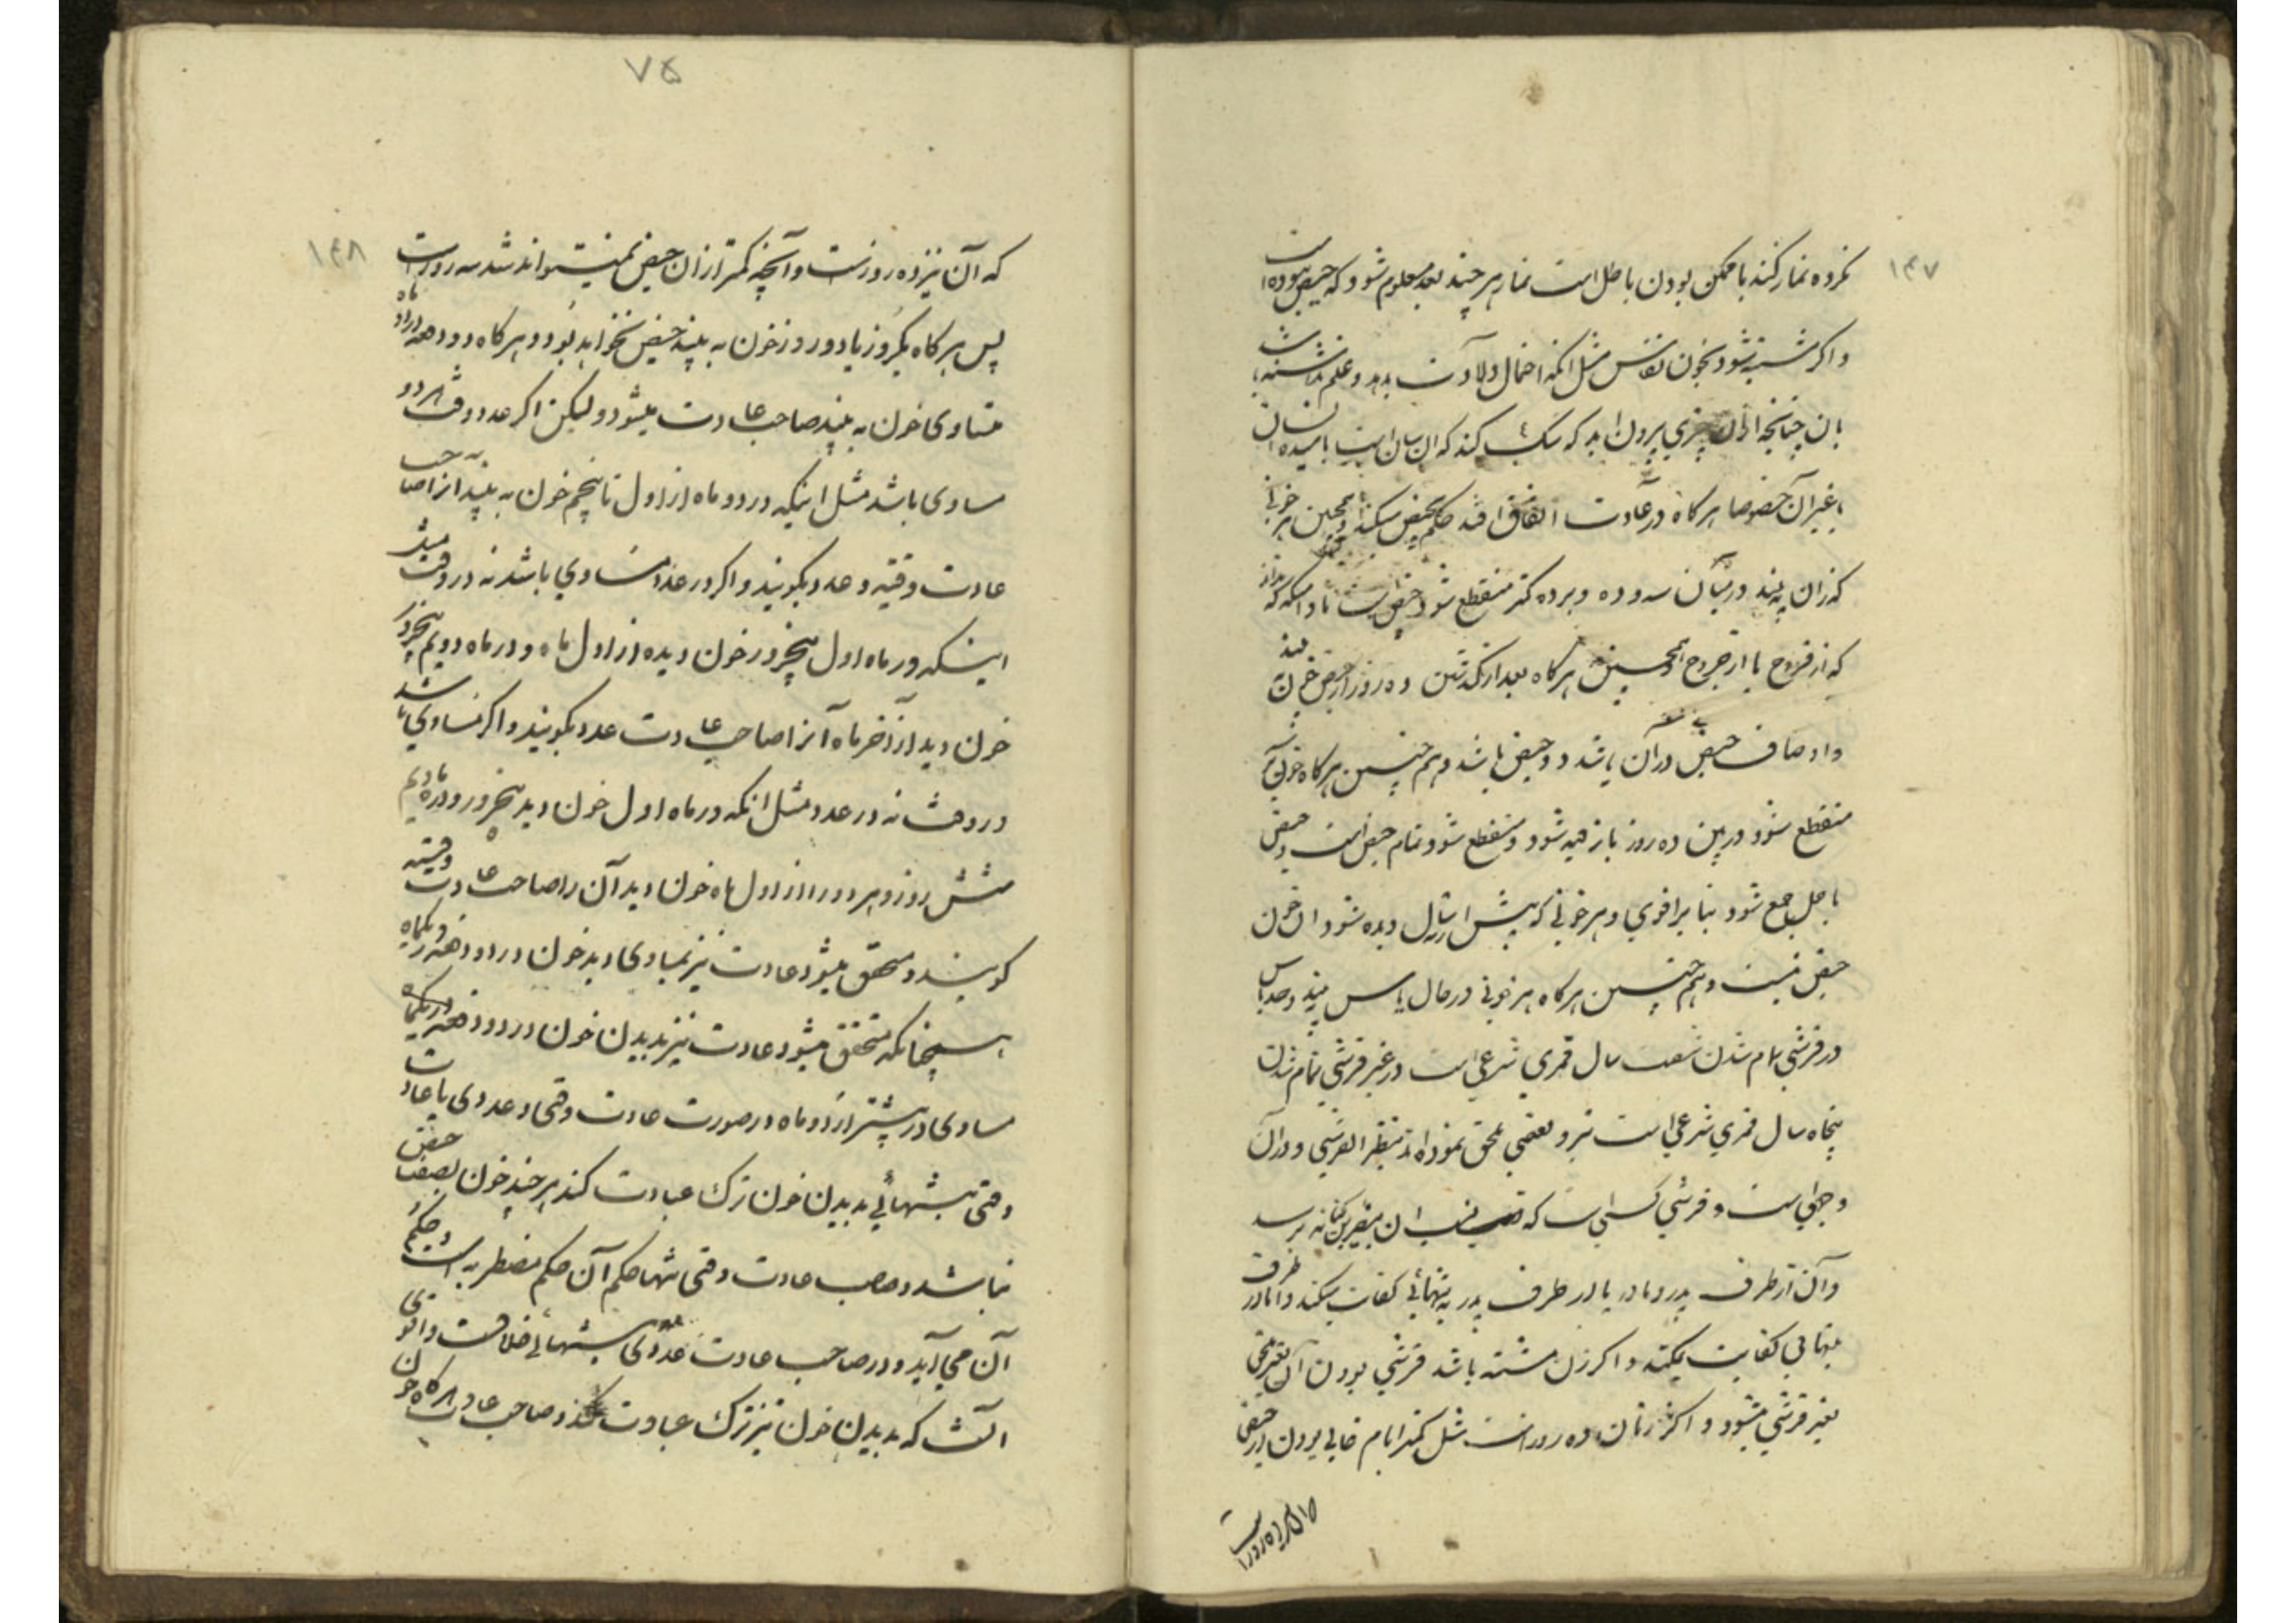 ۱۴۷
نکرده نماز کند با ممکن بودن باطل است نماز هر چند بعد معلوم شود که حیض نبوده است
و اگر مشتبه شود بخون نفاس مثل آنکه احتمال ولادت بدهد و علم نداشته باشد
بآن چنانچه از آن چیزی بیرون آید که شک کند که آن انسان است یا مبدء انسان
یا غیر آن خصوصا هر گاه در عادت اتفاق افتد حکم بحیض میکند و همچنین هر خونیرا
که زن به بیند در میان سه و ده و بر ده کمتر منقطع شود حیض است تا دامیکه نداند
که از قروح یا از جروح است و همچنین هر گاه بعد از گذشتن ده روز از حیض خون به بیند
و اوصاف حیض در آن باشد دو حیض باشد و هم چنین هر گاه خون
منقطع شود و در بین ده روز باز دیده شود و منقطع شود تمام حیض است و حیض
با حمل جمع شود بنا بر اقوی و هر خونی که پیش از نه سال دیده شود آن خون
حیض نیست و هم چنین هر گاه هر خونی در حال یاس بیند و حد یاس
در قرشی تمام شدن شصت سال قمری شرعی است و در غیر قرشی تمام شدن
پنجاه سال قمری شرعی است و بعضی ملحق نموده‌اند نبطیه را بقرشی و در آن
وجهی است و قرشی کسی است که نسب آن بنضر بن کنانه برسد
و آن از طرف پدر و مادر یا از طرف پدر به تنهائی کفایت میکند و اما از طرف مادر
بتنهائی کفایت نمیکند و اگر زن مشتبه باشد قرشی بودن آن بغیر قرشی
بغیر قرشی میشود و اکثر زنان ده روز است مثل کمتر ایام خالی بودن از حیض
۷۵
۱۴۸
که آن نیز ده روز است و آنچه کمتر از آن حیض نمیتواند شد سه روز است
پس هر گاه یکروز یا دو روز خون به بیند حیض نخواهد بود و هر گاه دو دفعه در دو ماه
متساوی خون به بیند صاحب عادت میشود و لیکن اگر عدد و وقت هر دو
مساوی باشد مثل اینکه در دو ماه از اول تا پنجم خون به بیند آنرا صاحب
عادت وقتیه و عددیه گویند و اگر در عدد متساوی باشد نه در وقت مثل
اینکه در ماه اول پنجروز خون دیده از اول ماه و در ماه دویم پنجروز
خون دید از آخر ماه آنرا صاحب عادت عددیه گویند و اگر متساوی باشد
در وقت نه در عدد مثل آنکه در ماه اول خون دید پنجروز و در ماه دویم
شش روز و هر دو را از اول ماه خون دید آن را صاحب عادت وقتیه
گویند و متحقق میشود عادت نیز بمساوی دید خون در دو دفعه در یکماه
همچنانکه متحقق میشود عادت نیز بدیدن خون در دو دفعه در یکماه
مساوی در بیشتر از دو ماه در صورت عادت وقتی و عددی یا عادت
وقتی بتنهائی بدیدن خون ترک عبادت کند هر چند خون بصفت حیض
نباشد و صاحب عادت وقتی تنها حکم آن حکم مضطربه است و حکم
آن می‌آید و در صاحب عادت عددی بتنهائی خلافست و اقوی
آنست که بدیدن خون نیز ترک عبادت کند و صاحب عادت هر گاه خون